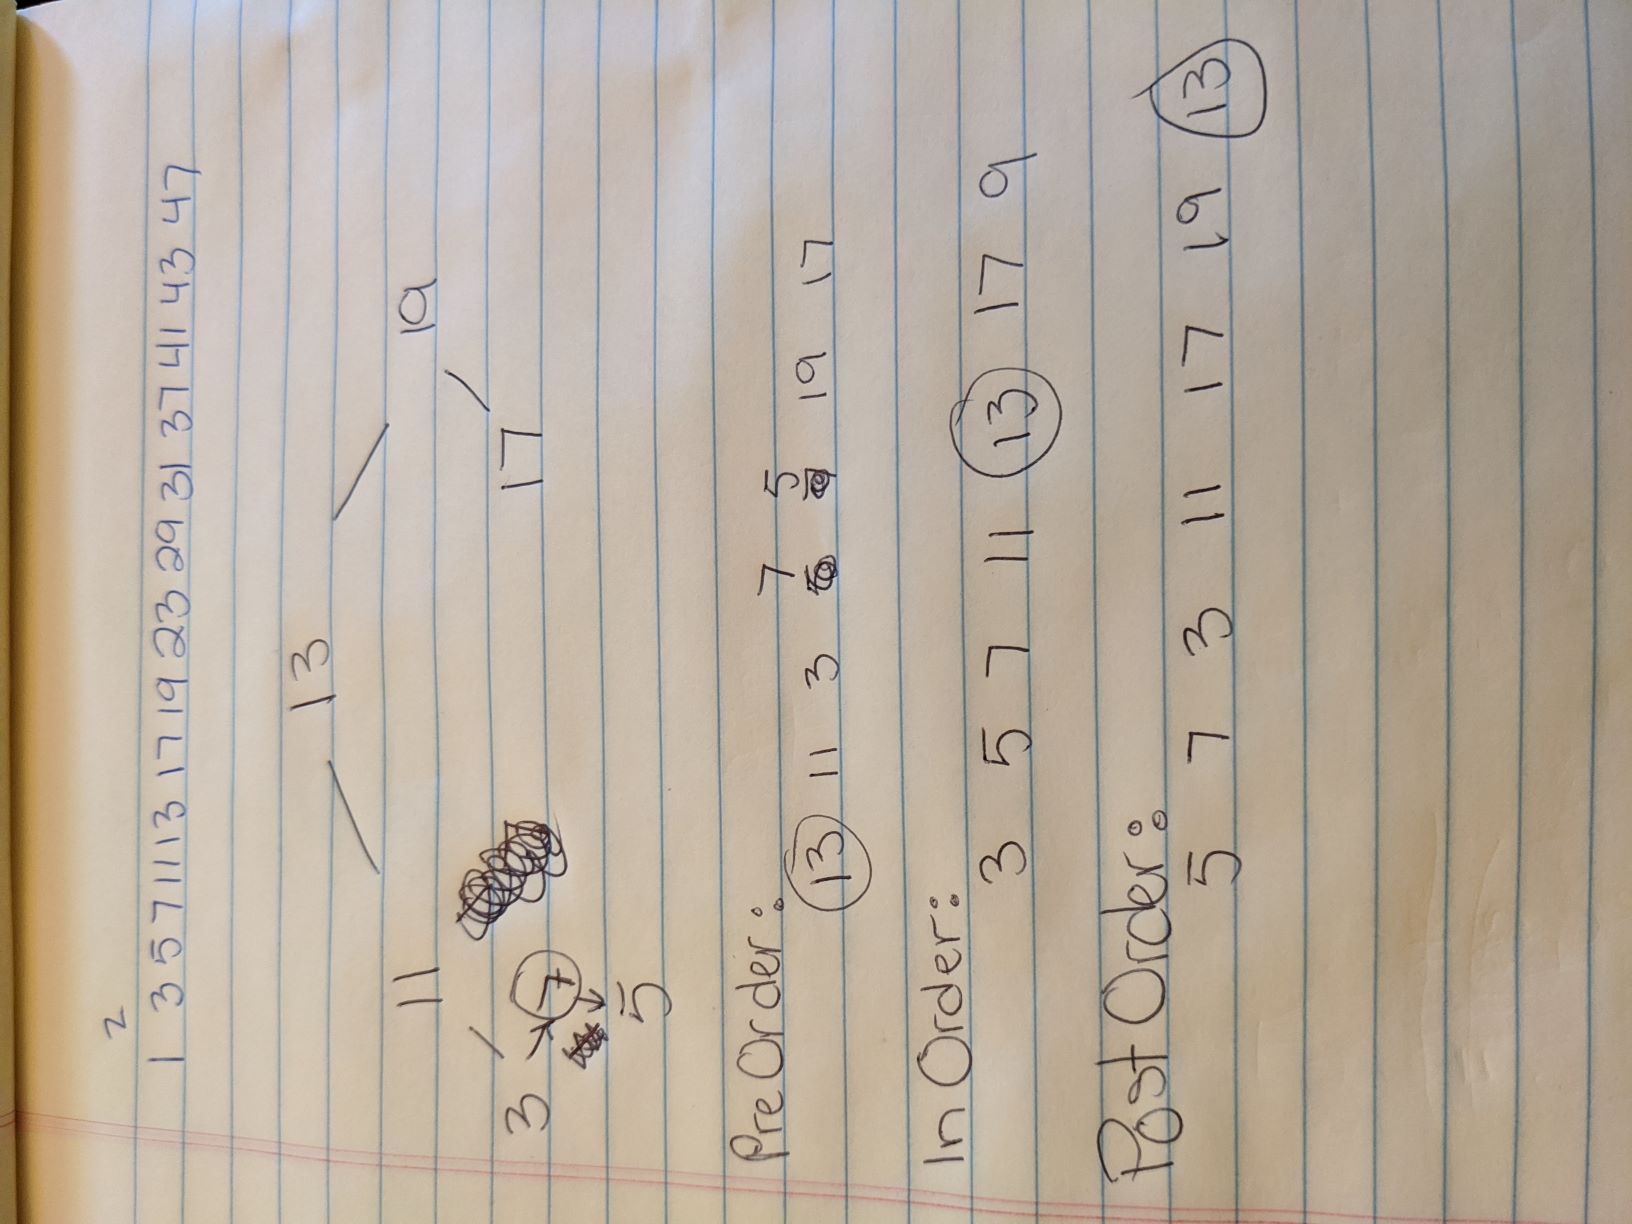 2
1 3 5 7 11 13 17 19 23 29 31 37 41 43 47
13
11 19
3 7 17
5
Pre Order:
7 5
13 11 3 19 17
In Order:
3 5 7 11 13 17 9
Post Order:
5 7 3 11 17 19 13